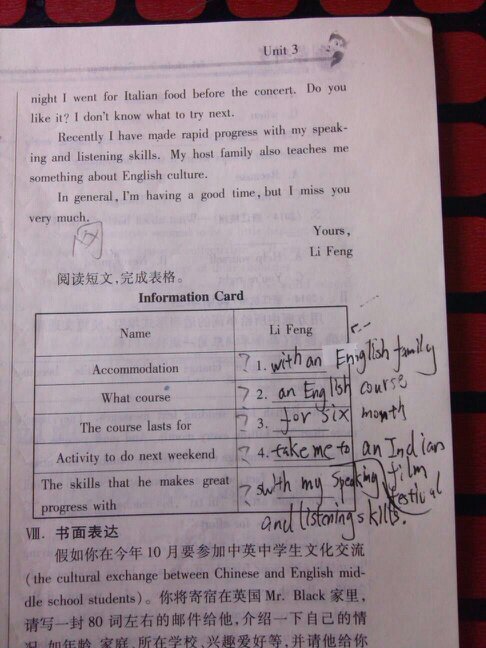 Unit 3
night I went for Italian food before the concert. Do you
like it? I don't know what to try next.
Recently I have made rapid progress with my speak-
ing and listening skills. My host family also teaches me
something about English culture.
In general, I'm having a good time, but I miss you
very much.
Yours,
Li Feng
阅读短文,完成表格。
Information Card
Name Li Feng
Accommodation ? 1. with an English family
What course ? 2. an English course
The course lasts for ? 3. for six month
Activity to do next weekend ? 4. take me to an Indian film festival
The skills that he makes great
progress with ? 5. with my speaking
and listening skills.
Ⅷ. 书面表达
假如你在今年 10 月要参加中英中学生文化交流
(the cultural exchange between Chinese and English mid-
dle school students)。你将寄宿在英国 Mr. Black 家里,
请写一封 80 词左右的邮件给他,介绍一下自己的情
况,如年龄、家庭、所在学校、兴趣爱好等,并请他给你